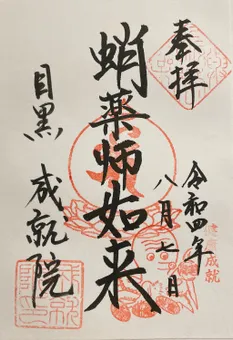 奉拝
令和四年
八月七日
蛸薬師如来
目黒 成就院